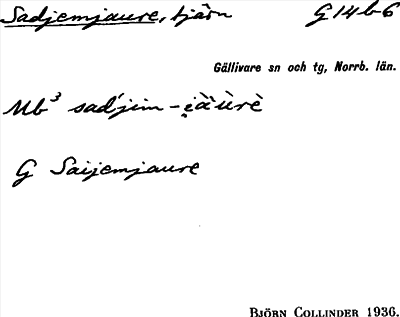 Sadjemjaure, tjärn G 14 b 6
Gällivare sn och tg, Norrb. län.
Mb³ sad'jim-i̯ä̀ùrè
G Saijemjaure
BJÖRN COLLINDER 1936.